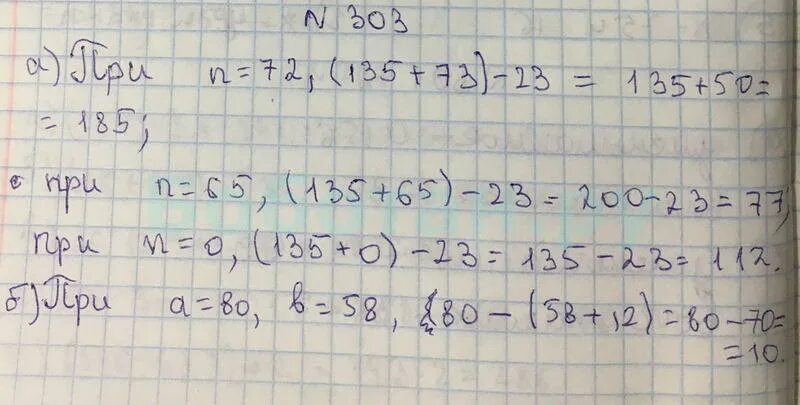 N 303
а) При n = 72, (135 + 73) - 23 = 135 + 50 =
= 185;
при n = 65, (135 + 65) - 23 = 200 - 23 = 77,
при n = 0, (135 + 0) - 23 = 135 - 23 = 112.
б) При a = 80, b = 58, 80 - (58 + 12) = 80 - 70 =
= 10.